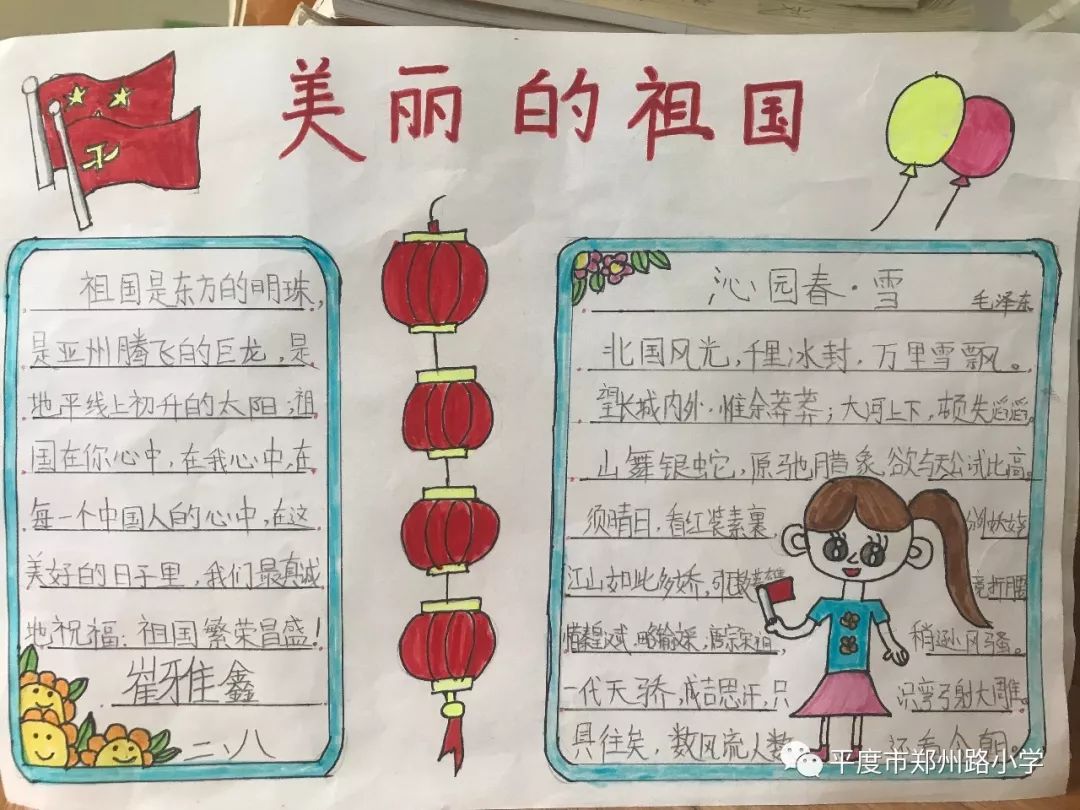 美丽的祖国
祖国是东方的明珠，
是亚州腾飞的巨龙，是
地平线上初升的太阳；祖
国在你心中，在我心中，在
每一个中国人的心中，在这
美好的日子里，我们最真诚
地祝福：祖国繁荣昌盛！
崔雅鑫
二、八
沁园春·雪
毛泽东
北国风光，千里冰封，万里雪飘。
望长城内外，惟余莽莽；大河上下，顿失滔滔
山舞银蛇，原驰腊象，欲与天公试比高。
须晴日，看红装素裹，分外妖娆
江山如此多娇，引 竞折腰
惜秦皇汉武，略输文采，唐宗宋祖，稍逊风骚。
一代天骄，成吉思汗，只 识弯弓射大雕。
具往矣，数风流人 还看今朝。
平度市郑州路小学